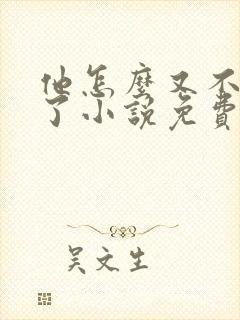 他怎麼又不
了小説免費
吴文生